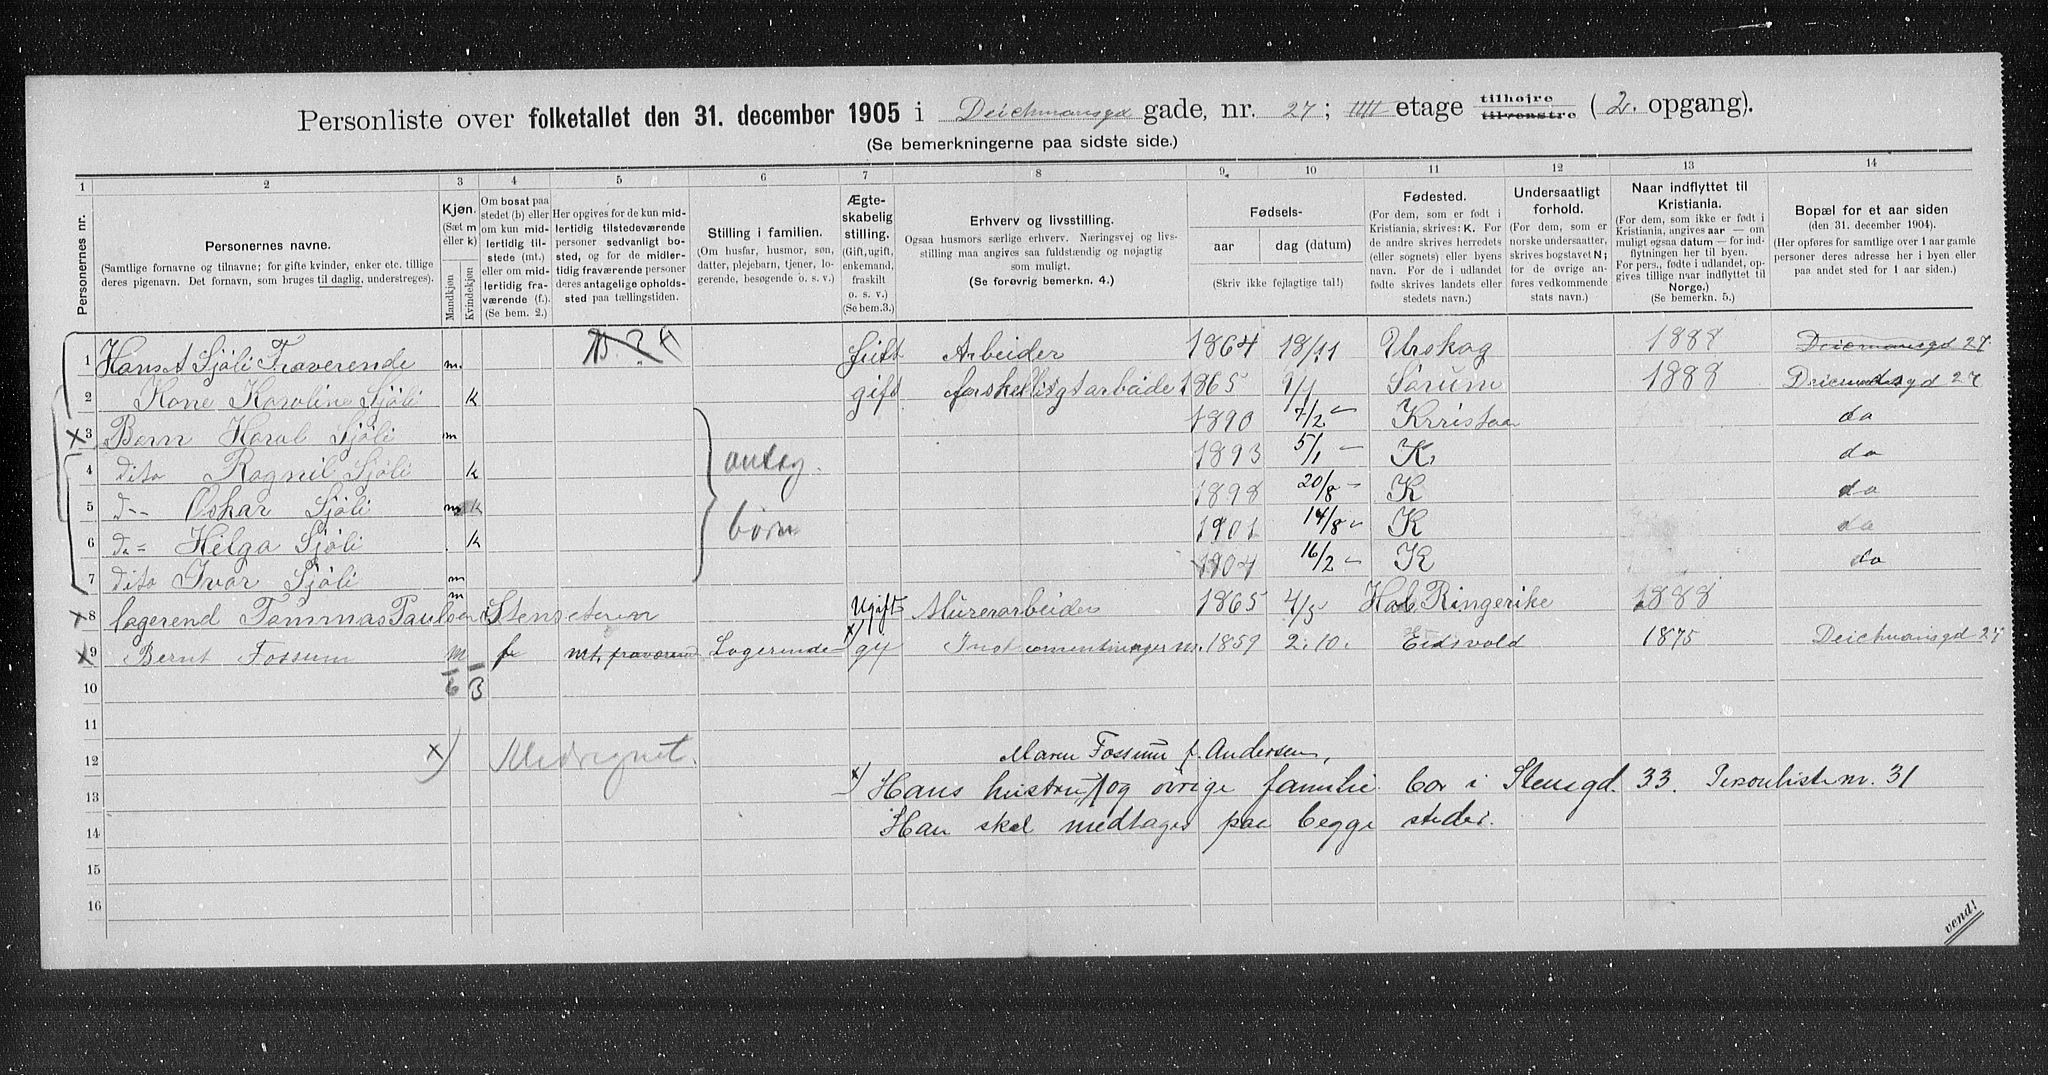 Personliste over folketallet den 31. december 1905 i Deichmansgd gade, nr. 27; IIII etage tilhøjre tilvenstre (2. opgang).
(Se bemerkningerne paa sidste side.)
1 2 3 4 5 6 7 8 9. 10 11 12 13 14
Personernes nr.
Personernes navne.
(Samtlige fornavne og tilnavne; for gifte kvinder, enker etc. tillige deres pigenavn. Det fornavn, som bruges til daglig, understreges).
Kjøn.
(Sæt m eller k)
Mandkjøn.
Kvindekjøn
Om bosat paa stedet (b) eller om kun midlertidig tilstede (mt.) eller om midlertidig fraværende (f.). (Se bem. 2.)
Her opgives for de kun midlertidig tilstedeværende personer sedvanlig bosted, og for de midlertidig fraværende personer deres antagelige opholdssted paa tællingstiden.
Stilling i familien.
(Om husfar, husmor, søn, datter, plejebarn, tjener, logerende, besøgende o. s. v.)
Ægteskabelig stilling.
(Gift, ugift, enkemand, fraskilt o. s. v.)
(Se bem.3.)
Erhverv og livsstilling.
Ogsaa husmors særlige erhverv. Næringsvej og livsstilling maa angives saa fuldstændig og nøjagtig som muligt.
(Se forøvrig bemerkn. 4.)
Fødsels-
aar dag (datum)
(Skriv ikke fejlagtige tal!)
Fødested.
(For dem, som er født i Kristiania, skrives: K. For de andre skrives herredets (eller sognets) eller byens navn. For de i udlandet fødte skrives landets eller stedets navn.)
Undersaatligt forhold.
(For dem, som er norske undersaatter, skrives bogstavet N; for de øvrige anføres vedkommende stats navn.)
Naar indflyttet til Kristiania.
(For dem, som ikke er født i Kristiania, angives aar — om muligt ogsaa datum — for indflytningen her til byen. For pers., fødte i udlandet, opgives tillige naar indflyttet til Norge.)
(Se bemerkn. 5.)
Bopæl for et aar siden
(den 31. december 1904).
(Her opføres for samtlige over 1 aar gamle personer deres adresse her i byen eller paa andet sted for 1 aar siden.)
1 Hans A Sjöli Fraverende m. Gift Arbeider 1864 18/11 Urskog 1888 Deicmansgd 27
2 Kone Karoline Sjöli k gift forskelligtarbeide 1865 1/1 Sörum 1888 Deicmansgd 27
x 3 Barn Haral Sjöli m 1890 7/2 – Krristan do
4 dito Ragnil Sjöli k antag. 1893 5/1 – K. do
5 d-- Oskar Sjöli m k 1898 20/8 – K do
6 do = Hilga Sjöli k børn 1901 14/8 – K do
7 dito Ivar Sjöli m 1904 16/2 – K do
x 8 logerend Tommas Paulsen m Stenseteren Ugift Murerarbeider 1865 4/5 Hole Ringerike 1888
x 9 Bernt Fossum m f mt. fraværend Logerende x) gf 1859 2.10. Eidsvold 1875 Deichmansgd 27
10 6 3
11
12 x) Maren Fossum f. Andersen,
13 x) Hans hustru og övrige familie bor i Stensgd. 33. Personliste nr. 31
14 Han skal medtages paa begge steder.
15
16
vend!